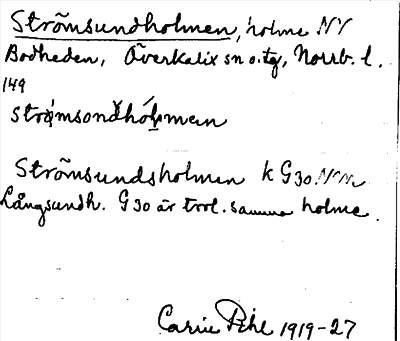 Strömsundholmen, holme NV
Bodheden, Överkalix sn o. tg, Norrb. l.
149
Strömsundsholmen k G30
Långsundh. G30 är trol. samma holme.
Carin Pihl 1919-27